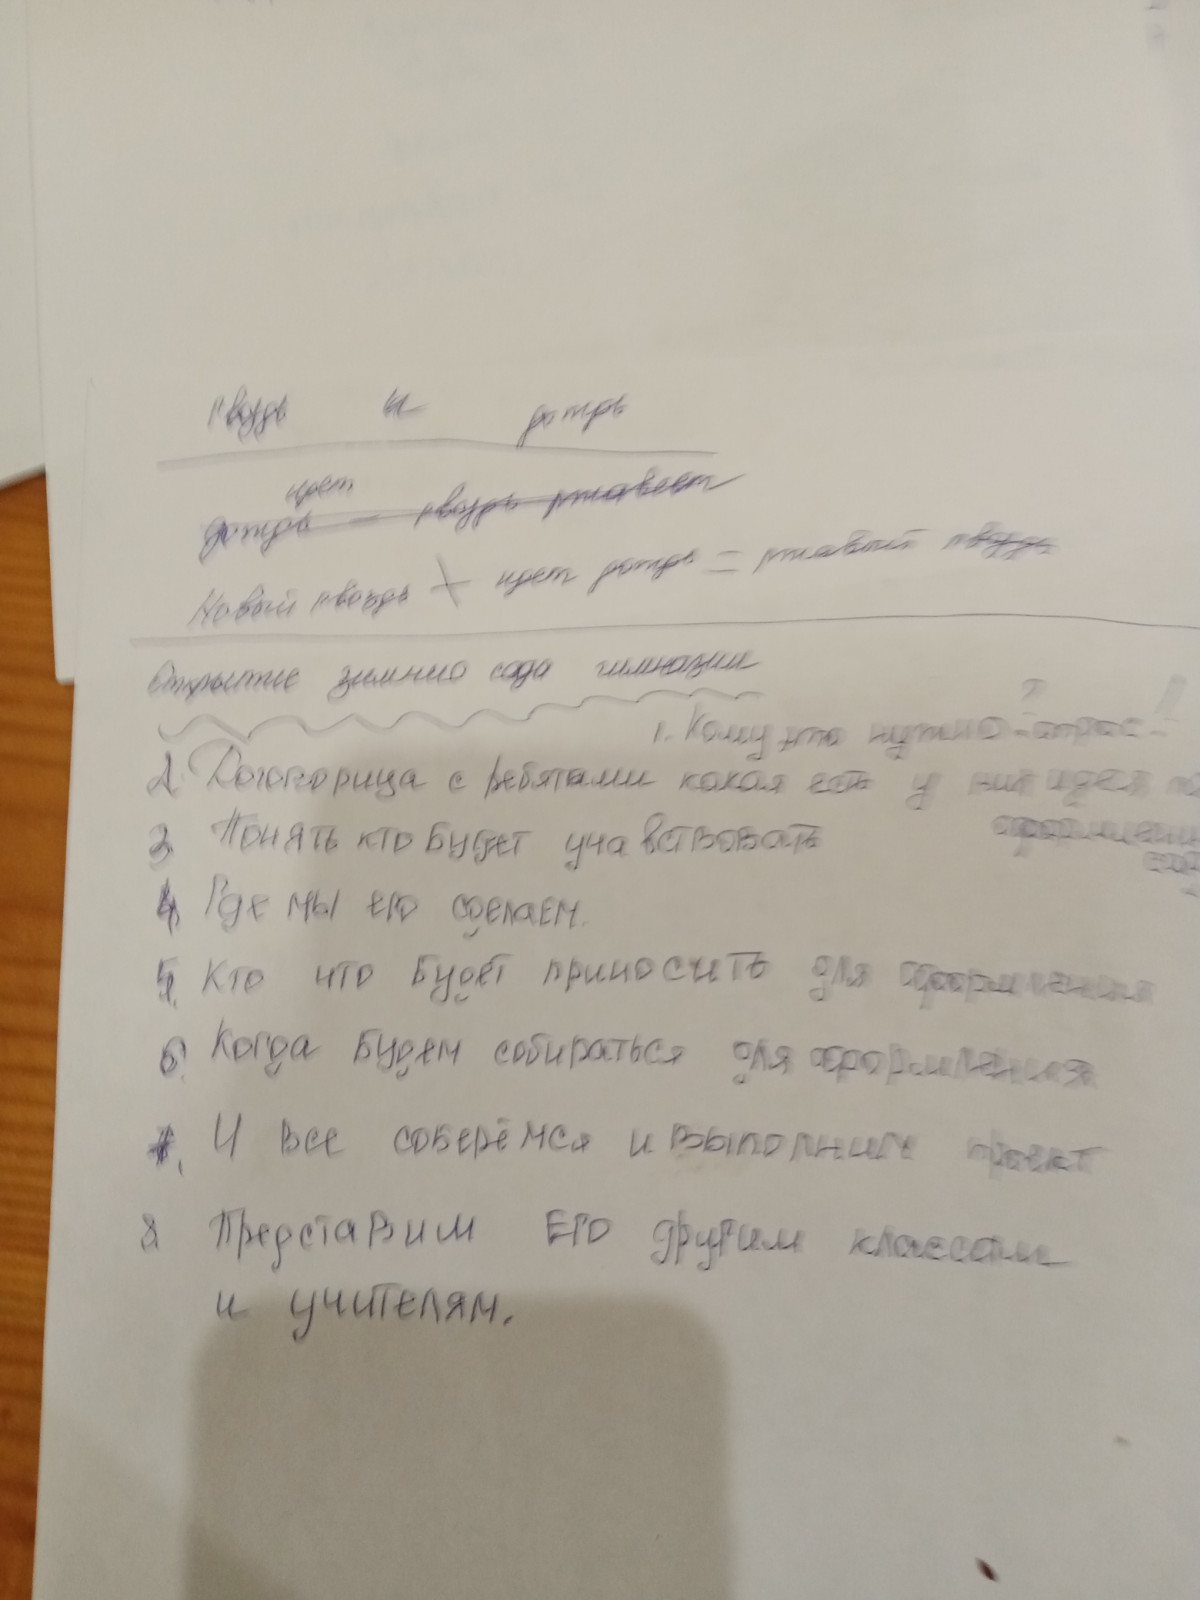 гвоздь и дождь
идет
дождь – гвоздь ржавеет
Новый гвоздь + идет дождь = ржавый гвоздь
Открытие зимнио сада гимназии
1. Кому это нужно? - опрос!
2. Договорица с ребятами какая есть у них идея
оформления
3. Понять кто будет учавствовать
4. Где мы его сделаем.
5. Кто что будет приносить для оформления
6. Когда будем собираться для оформления
7. И все соберёмся и выполним проект
8. Представим его другим классам
и учителям.